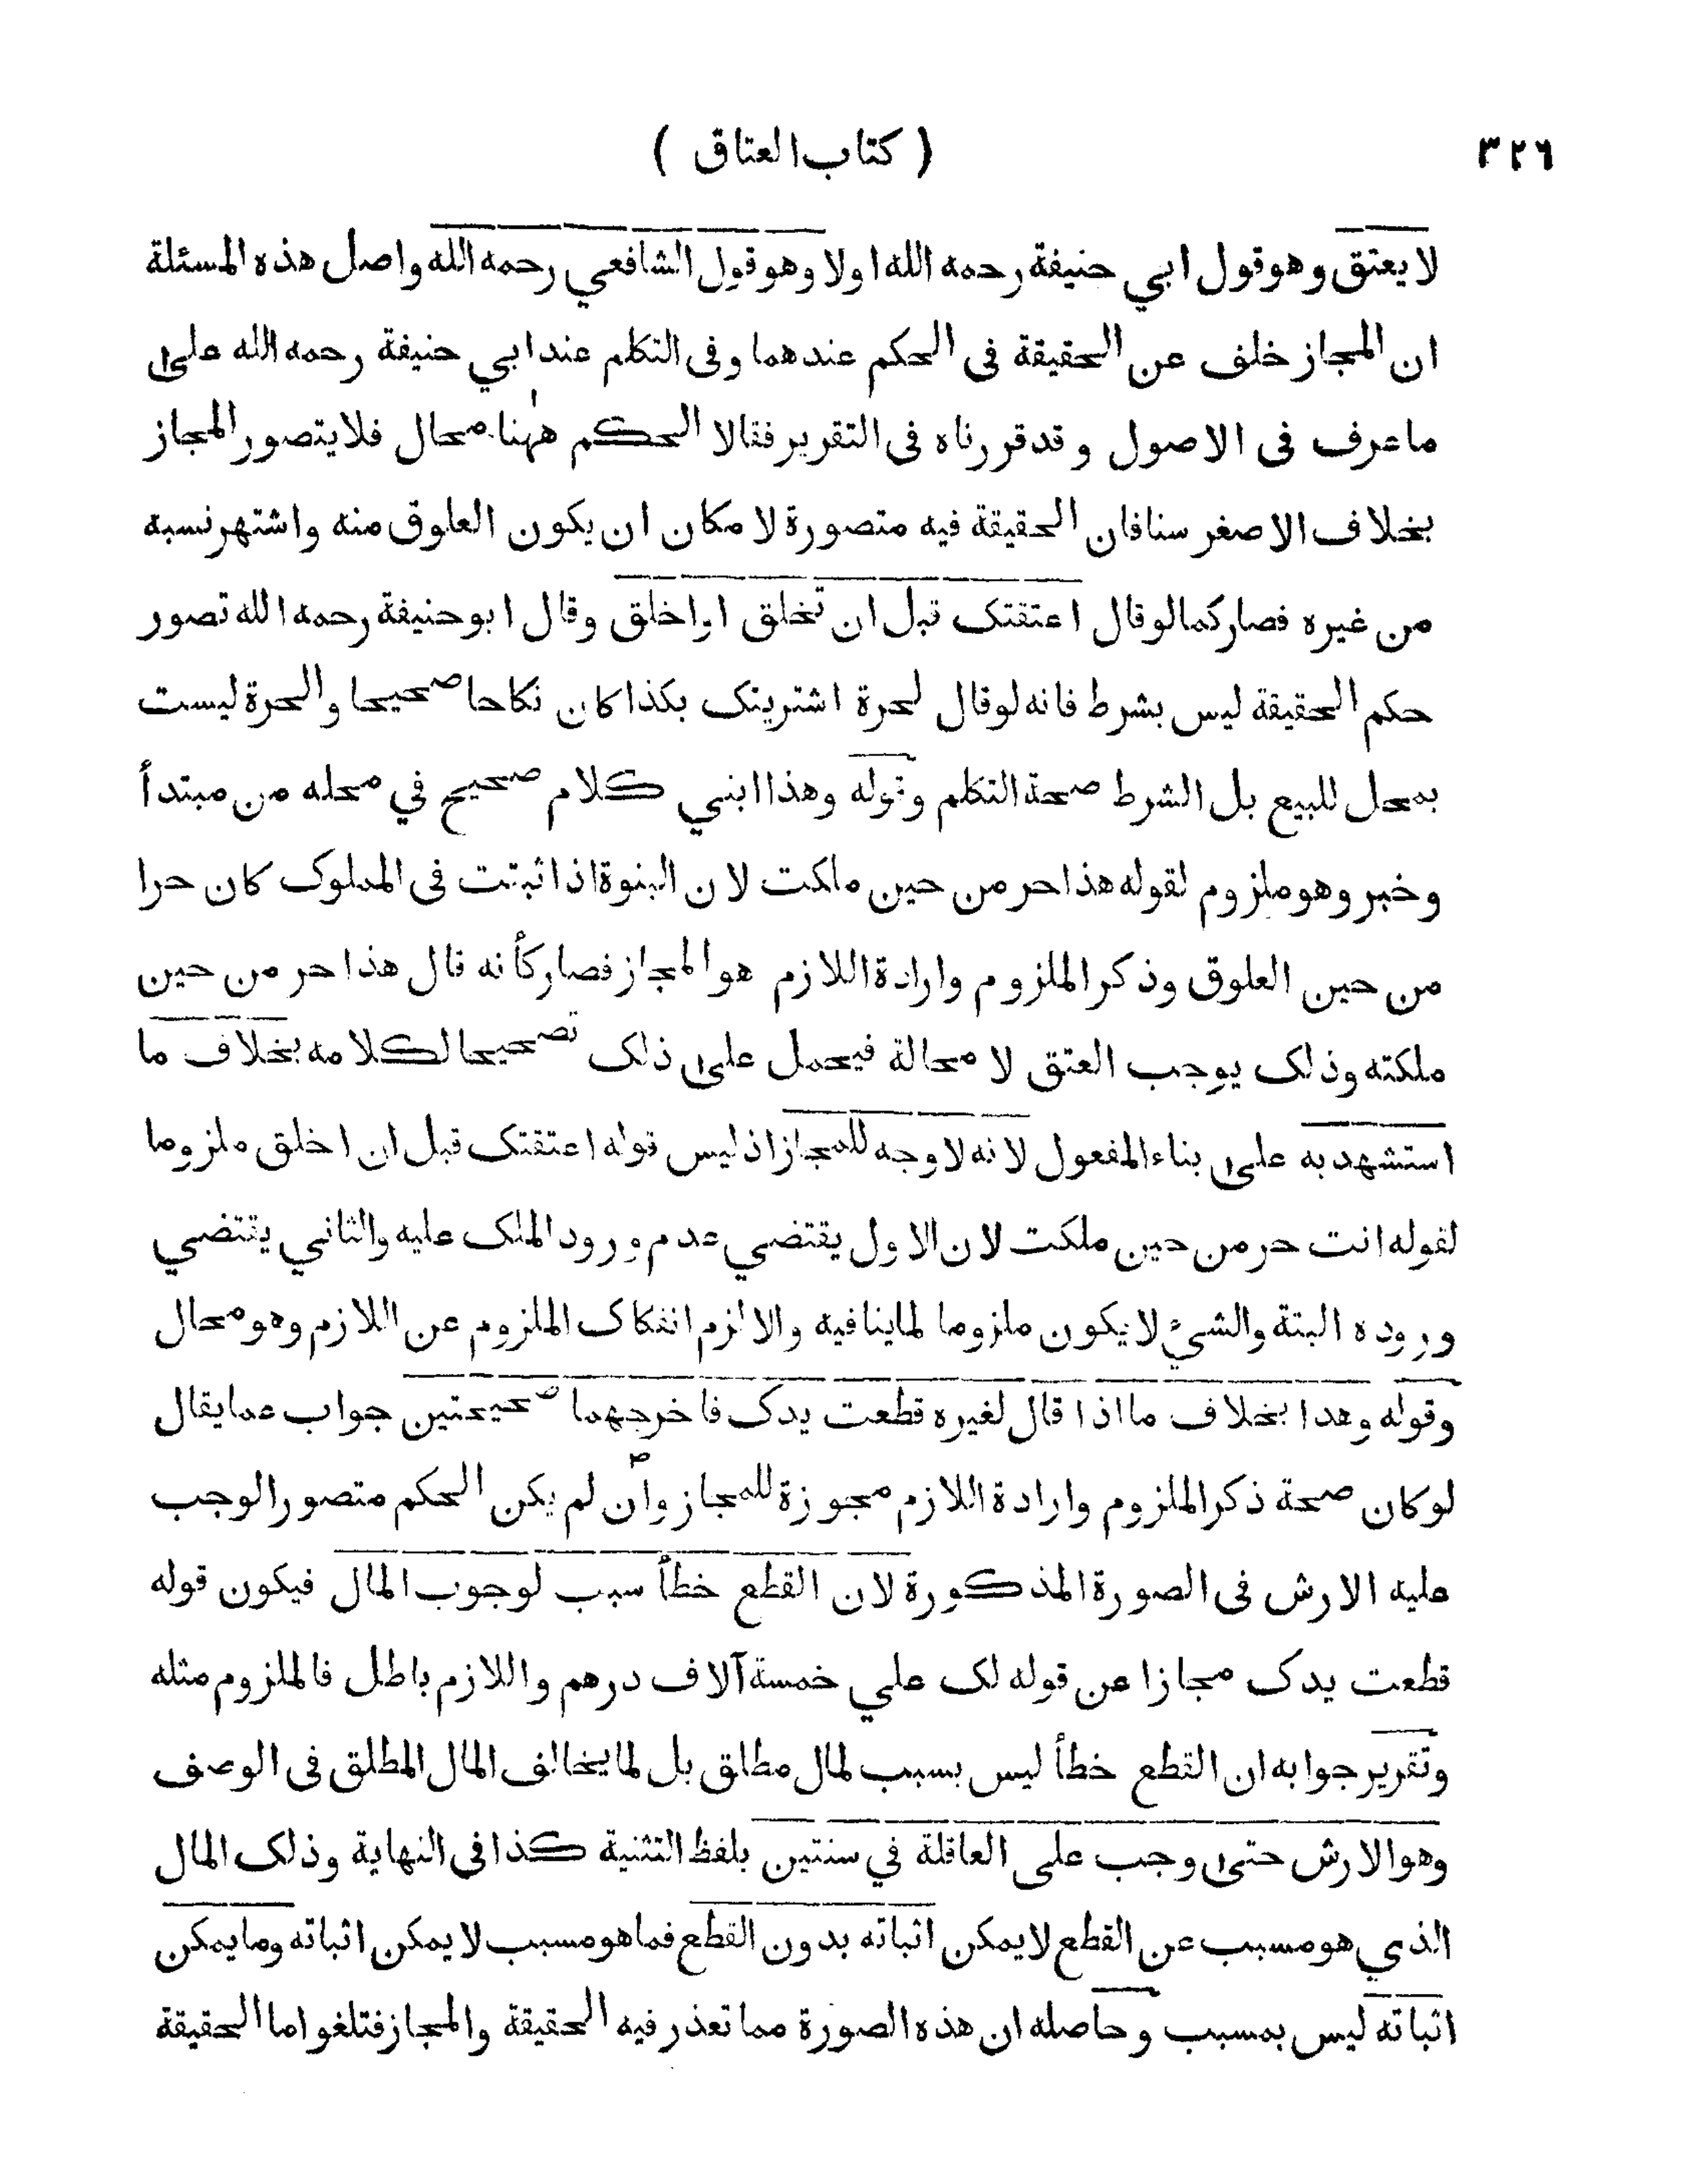 ٣٢٦ ( كتاب العتاق )
لا يعتق وهو قول ابي حنيفة رحمه الله اولا وهو قول الشافعي رحمه الله واصل هذه المسئلة
ان المجاز خلف عن الحقيقة فى الحكم عندهما وفى التكلم عند ابي حنيفة رحمه الله على
ما عرف فى الاصول وقد قررناه فى التقرير فقالا الحكم ههنا محال فلا يتصور المجاز
بخلاف الاصغر سنا فان الحقيقة فيه متصورة لا مكان ان يكون العلوق منه واشتهر نسبه
من غيره فصار كما لو قال اعتقتك قبل ان تخلق او اخلق وقال ابو حنيفة رحمه الله تصور
حكم الحقيقة ليس بشرط فانه لو قال لحرة اشتريتك بكذا كان نكاحا صحيحا والحرة ليست
بمحل للبيع بل الشرط صحة التكلم وقوله وهذا ابني كلام صحيح في محله من مبتدأ
وخبر وهو ملزوم لقوله هذا حر من حين ملكت لان البنوة اذا ثبتت فى المملوك كان حرا
من حين العلوق وذكر الملزوم وارادة اللازم هو المجاز فصار كأنه قال هذا حر من حين
ملكته وذلك يوجب العتق لا محالة فيحمل على ذلك تصحيحا لكلامه بخلاف ما
استشهد به على بناء المفعول لانه لا وجه للمجاز اذ ليس قوله اعتقتك قبل ان اخلق ملزوما
لقوله انت حر من حين ملكت لان الاول يقتضي عدم ورود الملك عليه والثاني يقتضي
وروده البتة والشيء لا يكون ملزوما لما ينافيه والا لزم انفكاك الملزوم عن اللازم وهو محال
وقوله وهذا بخلاف ما اذا قال لغيره قطعت يدك فاخرجهما صحيحتين جواب عما يقال
لو كان صحة ذكر الملزوم وارادة اللازم مجوزة للمجاز وان لم يكن الحكم متصورا لوجب
عليه الارش فى الصورة المذكورة لان القطع خطأ سبب لوجوب المال فيكون قوله
قطعت يدك مجازا عن قوله لك علي خمسة آلاف درهم واللازم باطل فالملزوم مثله
وتقرير جوابه ان القطع خطأ ليس بسبب لمال مطلق بل لما يخالف المال المطلق فى الوصف
وهو الارش حتى وجب على العاقلة في سنتين بلفظ التثنية كذا فى النهاية وذلك المال
الذي هو مسبب عن القطع لا يمكن اثباته بدون القطع فما هو مسبب لا يمكن اثباته وما يمكن
اثباته ليس بمسبب وحاصله ان هذه الصورة مما تعذر فيه الحقيقة والمجاز فتلغو اما الحقيقة